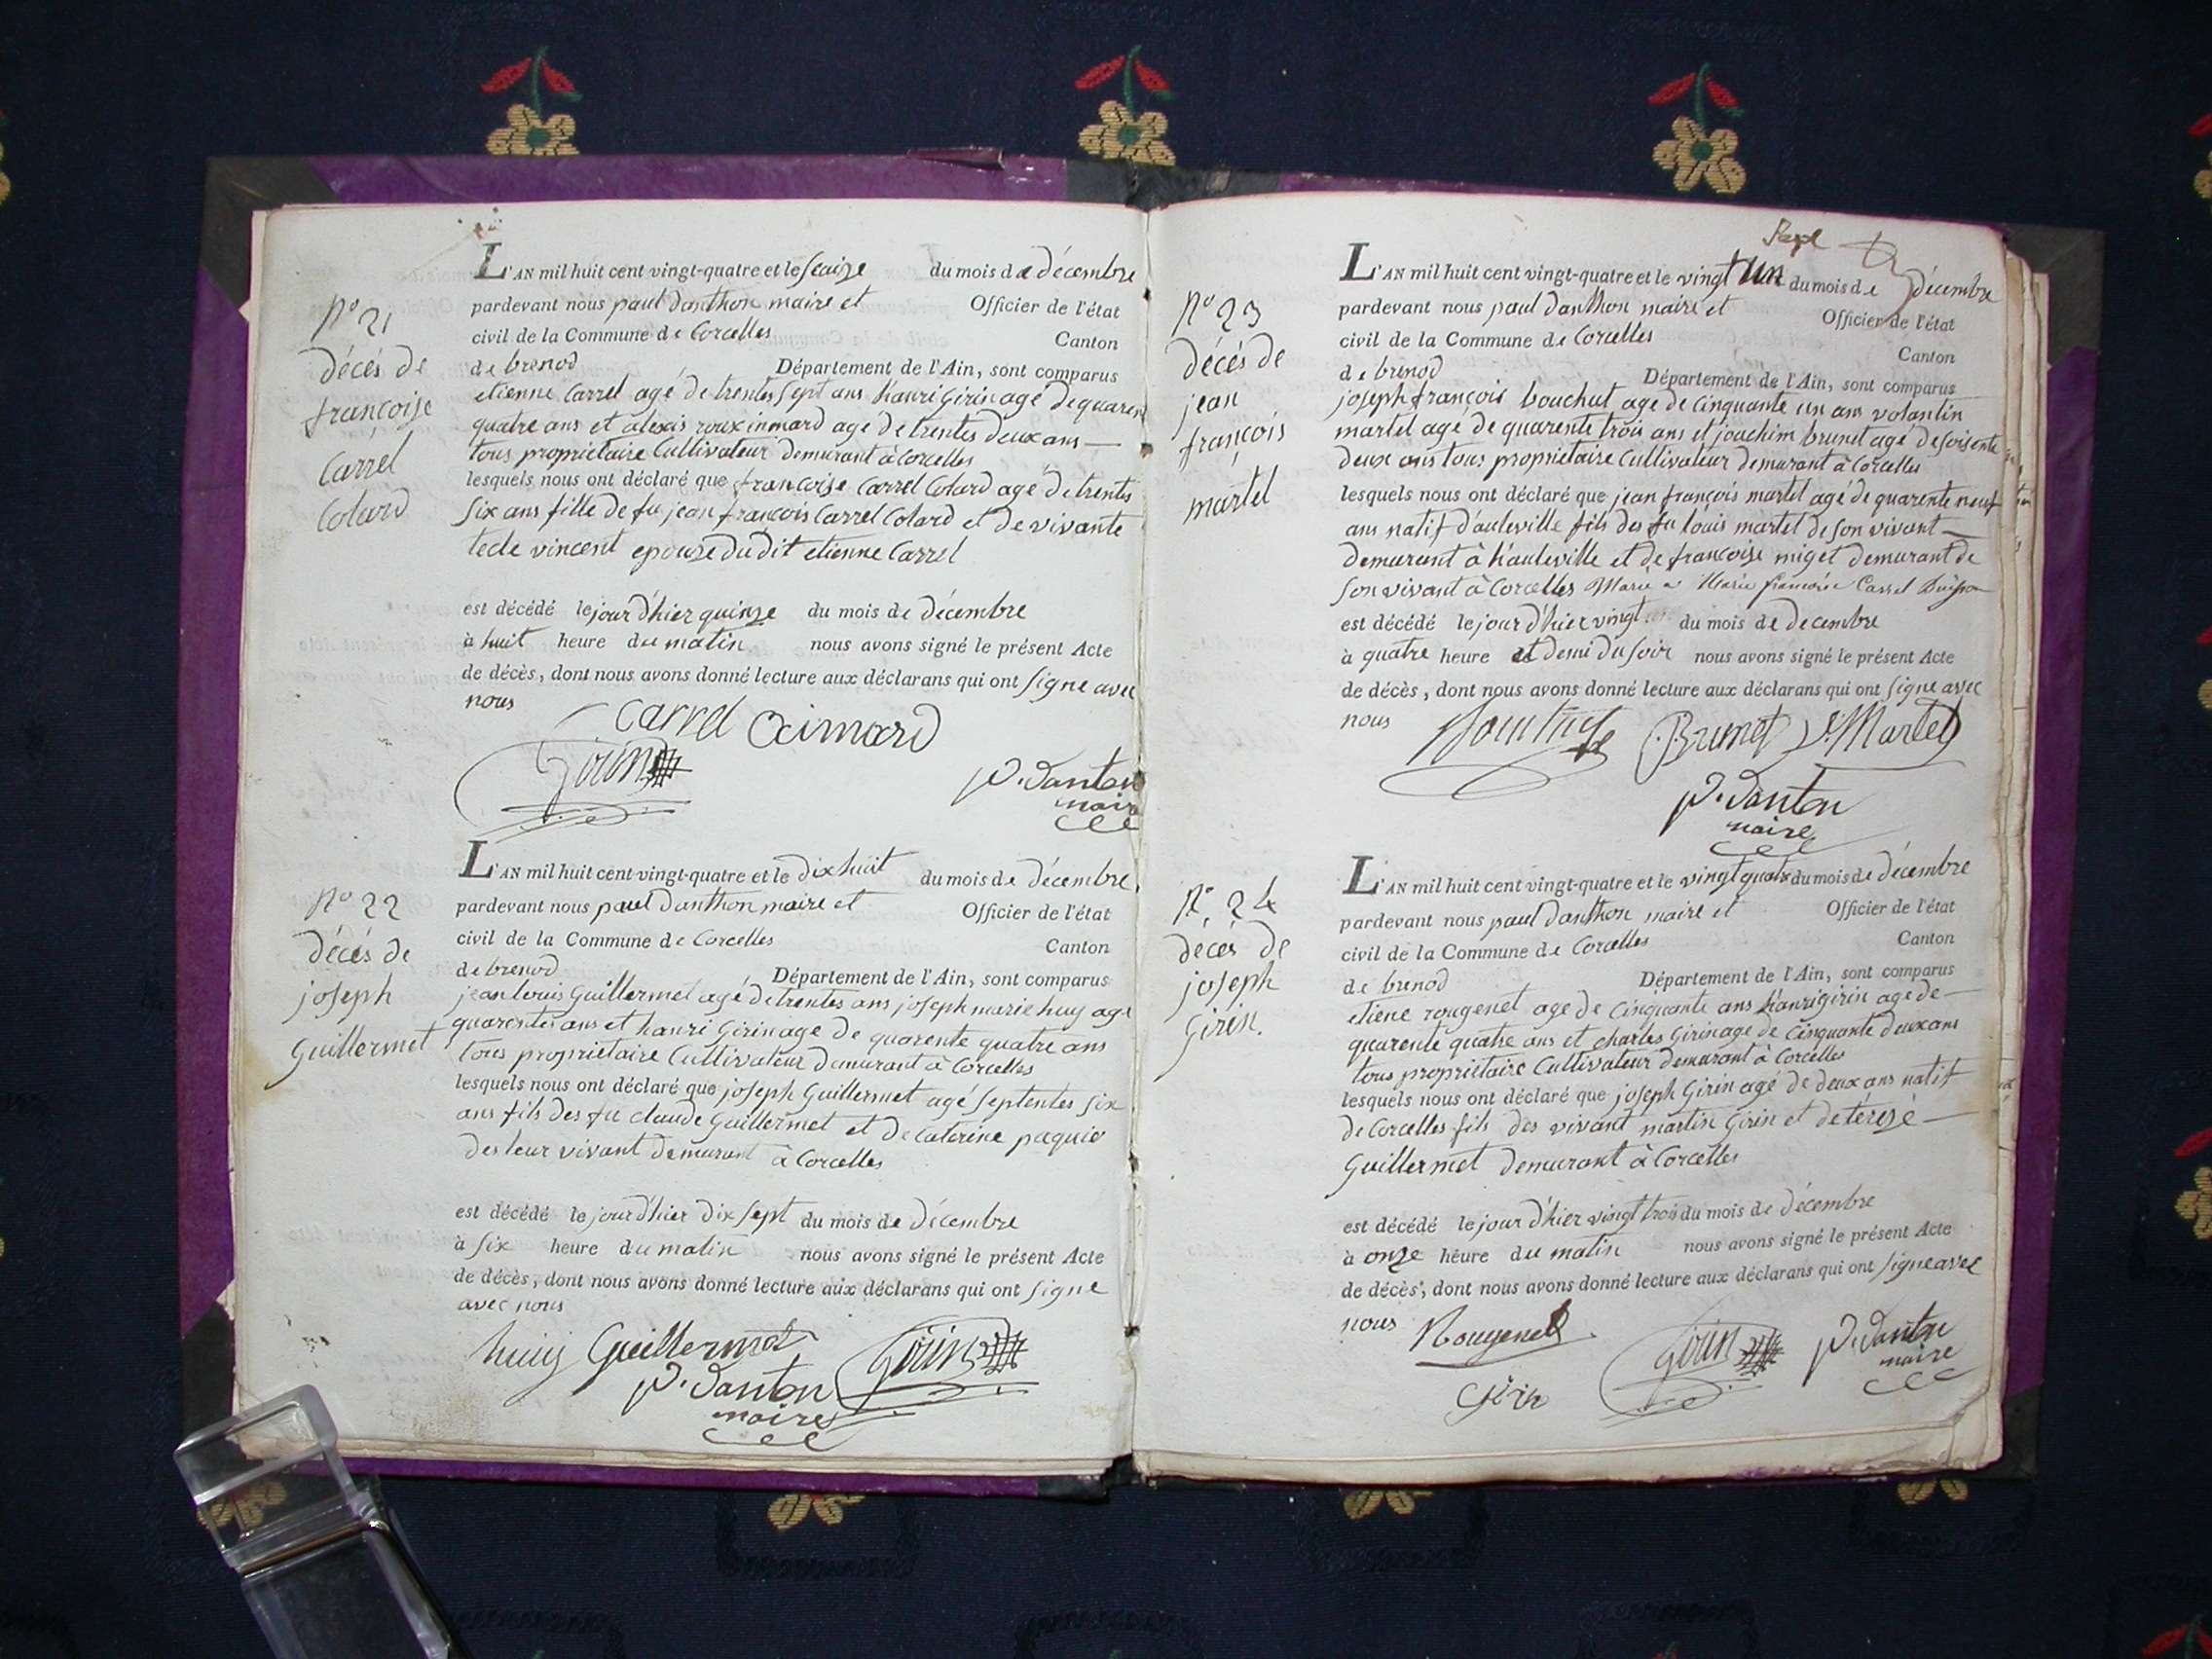 N° 21
décés de
françoise
Carrel
Colard
L'AN mil huit cent vingt-quatre et le seaize du mois de décembre
pardevant nous paul danthon maire et Officier de l'état
civil de la Commune de Corcelles Canton
de brenod Département de l'Ain, sont comparus
etienne Carrel agé de trentes sept ans hanri Girin agé de quarente
quatre ans et alexis roux inmard agé de trentes deux ans
tous proprietaire Cultivateur demurant à Corcelles
lesquels nous ont déclaré que francoise Carrel Colard agé de trentes
six ans fille de fu jean françois Carrel Colard et de vivante
tecle vincent epouse du dit etienne Carrel
est décédé le jour d'hier quinze du mois de décembre
à huit heure du matin nous avons signé le présent Acte
de décès, dont nous avons donné lecture aux déclarans qui ont signe avec
nous
Carrel
Girin
P. Danton
maire
N° 22
décés de
joseph
Guillermet
L'AN mil huit cent vingt-quatre et le dix huit du mois de décembre
pardevant nous paul danthon maire et Officier de l'état
civil de la Commune de Corcelles Canton
de brenod Département de l'Ain, sont comparus
jean louis Guillermet agé de trentes ans joseph marie huy age
quarentes ans et hanri Girin age de quarente quatre ans
tous proprietaire Cultivateur demurant à Corcelles
lesquels nous ont déclaré que joseph Guillermet agé septentes six
ans fils des fu claude Guillermet et de Caterine paquio
des leur vivant demurant à Corcelles
est décédé le jour d'hier dix sept du mois de décembre
à six heure du matin nous avons signé le présent Acte
de décès, dont nous avons donné lecture aux déclarans qui ont signe
avec nous
Guillermet Girin
P. Danton
maire
N° 23
décés de
jean
françois
martel
L'AN mil huit cent vingt-quatre et le vingt un du mois de décembre
pardevant nous paul danthon maire et Officier de l'état
civil de la Commune de Corcelles Canton
de brenod Département de l'Ain, sont comparus
joseph françois bouchut age de cinquante un ans volantin
martel agé de quarente trois ans et joachim brunet agé de soisente
deux ans tous proprietaire Cultivateur demurant à Corcelles
lesquels nous ont déclaré que jean françois martel agé de quarente neuf
ans natif d'auteville fils des fu louis martel de son vivant
demurant à hauteville et de francoise miget demurant de
son vivant à Corcelles Marié a Marie francoise Carrel
est décédé le jour d'hier vingt du mois de decembre
à quatre heure et demi du soir nous avons signé le présent Acte
de décès, dont nous avons donné lecture aux déclarans qui ont signe avec
nous
Brunet Martel
P. Danton
maire
N° 24
décés de
joseph
Girin.
L'AN mil huit cent vingt-quatre et le vingt quatre du mois de décembre
pardevant nous paul danthon maire et Officier de l'état
civil de la Commune de Corcelles Canton
de brenod Département de l'Ain, sont comparus
etiene rougenet age de cinquante ans hanri girin age de
quarente quatre ans et charles Girin age de cinquante deux ans
tous proprietaire Cultivateur demurant à Corcelles
lesquels nous ont déclaré que joseph Girin agé de deux ans natif
de Corcelles fils des vivant martin Girin et de térèzé
Guillermet demurant à Corcelles
est décédé le jour d'hier vingt trois du mois de décembre
à onze heure du matin nous avons signé le présent Acte
de décès, dont nous avons donné lecture aux déclarans qui ont signe avec
nous
Rougenet
Girin
Girin
P. Danton
maire